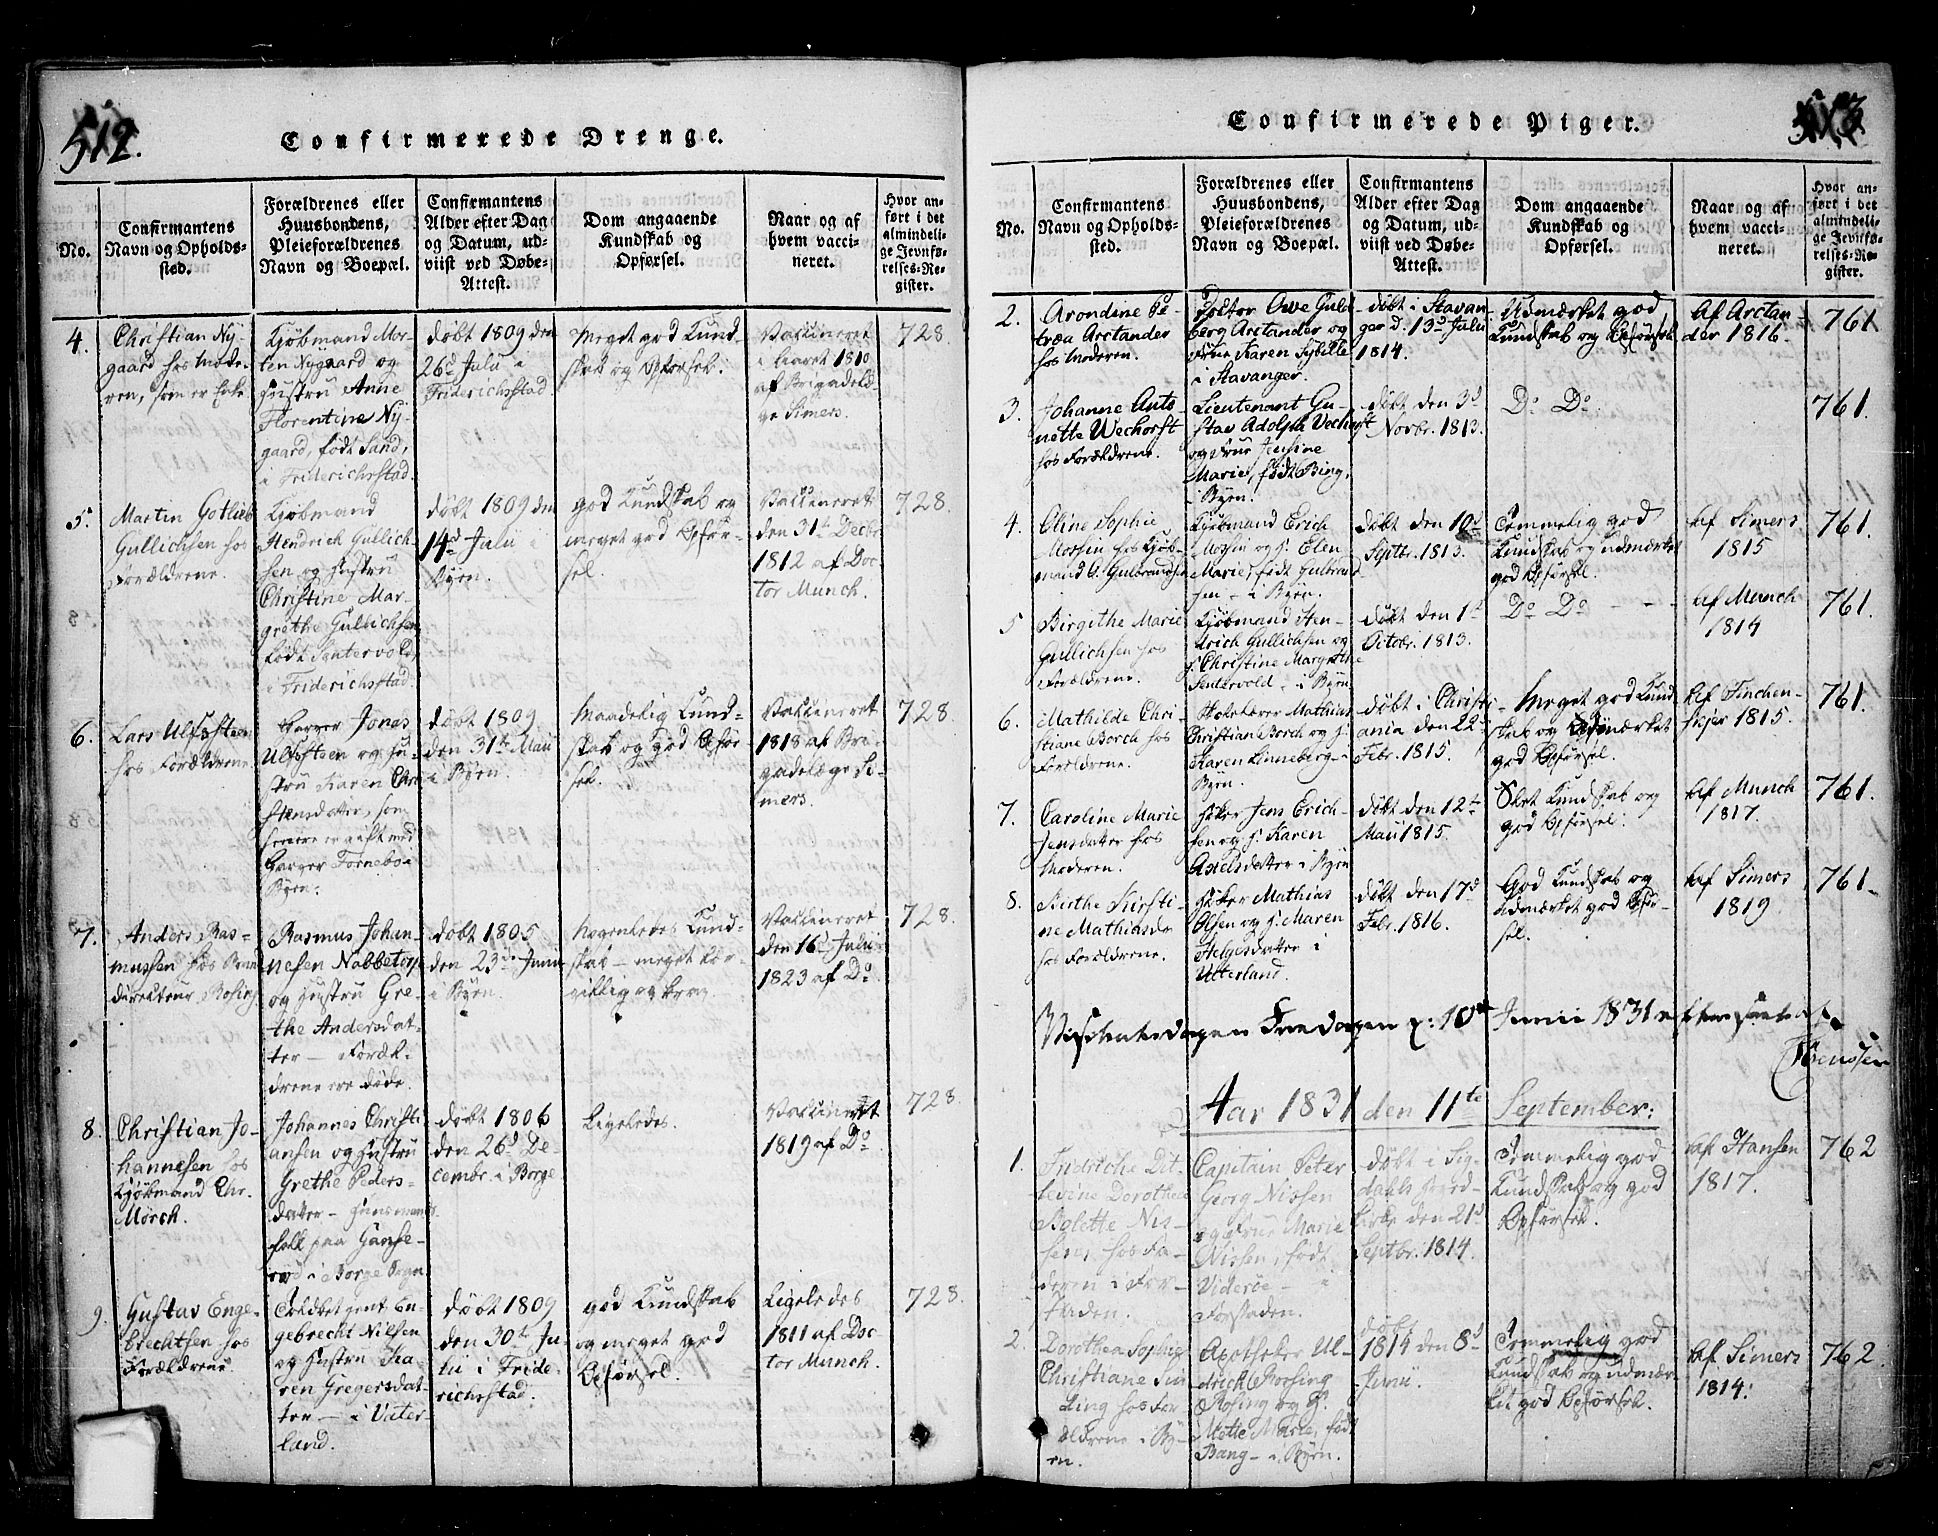 512.
Confirmerede Drenge.
No.
Confirmantens
Navn og Opholds-
sted.
Forældrenes eller
Huusbondens,
Pleieforældrenes
Navn og Boepæl.
Confirmantens
Alder efter Dag
og Datum, ud-
viist ved Døbe-
Attest.
Dom angaaende
Kundskab og
Opførsel.
Naar og af
hvem vacci-
neret.
Hvor an-
ført i det
almindeli-
ge Jevnfø-
relses-Re-
gister.
4.
Christian Ny-
gaard hos Mode-
ren, som er Enke
Kjøbmand Mor-
ten Nygaard og
Hustru Anne
Florentine Ny-
gaard, født Sand,
i Friderichsstad.
døbt 1809 den
26d Julii i
Friderichsstad.
Meget god Kund-
skab og Opførsel.
Vaccineret
i Aaret 1810
af Brigadelæ-
ge Simers.
728.
5.
Martin Gotlieb
Gullichsen hos
Forældrene.
Kjøbmand
Hendrich Gullich-
sen og Hustru
Christine Mar-
grethe Gullichsen
født Sentervold
i Friderichsstad.
døbt 1809 den
14d Julii i
Byen.
god Kundskab og
meget god Opfør-
sel.
Vaccineret
den 31te Decbr
1812 af Doc-
tor Munch.
728.
6.
Lars Ulfssteen
hos Forældrene.
Garver Jonas
Ulfssteen og Hu-
stru Karen Chri-
stensdatter, som
er gift med
Garver Fornebo i
Byen.
døbt 1809
den 31te Maii
i Byen.
Maadelig Kund-
skab og god Opfør-
sel.
Vaccineret
1818 af Bri-
gadelæge Si-
mers.
728.
7.
Anders Ras-
mussen hos
directeur Rosing
Rasmus Johan-
nesen Nabbetorp
og Hustru Gre-
the Andersdat-
ter - Foræl-
drene ere døde.
døbt 1805
den 23de Junii
i Byen.
Nogenledes Kund-
skab - meget
og brav.
Vaccineret
den 16d Julii
1823 af Do.
728.
8.
Christian Jo-
hannesen hos
Kjøbmand Chr.
Mørch.
Johannes Christi-
ansen og Hustru
Grethe Peders-
datter - Huusmands-
folk paa Hanse-
rød i Borge Sogn
døbt 1806
den 26d De-
cembr. i Borge
Ligeledes.
Vaccineret
1819 af Do
728.
9.
Gustav Enge-
brechtsen hos
Forældrene
En-
gebrecht Nilsen
og Hustru Ka-
ren Gregersdat-
ter - i Vater-
land.
døbt 1809
den 30te Ju-
lii i Fride-
richsstad.
god Kundskab
og meget god
Opførsel.
Ligeledes
1811 af Doc
tor Munch.
728.
513.
Confirmerede Piger.
No.
Confirmantens
Navn og Opholds-
sted.
Forældrenes eller
Huusbondens,
Pleieforældrenes
Navn og Boepæl.
Confirmantens
Alder efter Dag
og Datum, ud-
viist ved Døbe-
Attest.
Dom angaaende
Kundskab og
Opførsel.
Naar og af
hvem vacci-
neret.
Hvor an-
ført i det
almindeli-
ge Jevnfø-
relses-Re-
gister.
2.
Arondine Pe-
træa Arctander
hos Moderen.
Doctor Owe Guld-
berg Arctander og
Frue Karen Sybille
i Stavanger.
døbt i Stavan-
ger d. 13d Julii
1814.
Udmærket god
Kundskab og Opførsel.
Af Arctan-
der 1816.
761
3.
Johanne Anto-
nette Wechorst
hos Forældrene.
Lieutenant Gu-
stav Adolph Vechorst
og Frue Jensine
Marie, født Bing,
i Byen.
døbt den 3d
Novbr. 1813.
Do Do
761.
4.
Oline Sophie
Mossin hos Kjøb-
mand O. Gulbrandsen
Kjøbmand Erich
Mossin og H. Elen
Marie, født Gulbrand-
sen - i Byen.
døbt den 10d
Septbr. 1813.
Temmelig god
Kundskab og udmærket
god Opførsel.
Af Simers
1815
761.
5
Birgithe Marie
Gullichsen hos
Forældrene.
Kjøbmand Hen-
drich Gullichsen og
H. Christine Margrethe
Sentervold - i Byen
døbt den 1ste
Octobr. 1813.
Do Do - - -
Af Munch
1814
761.
6.
Mathilde Chri-
stiane Borch hos
Forældrene.
Mathias
Christian Borch og H.
Karen Linneberg - i
Byen.
døbt i Christi-
ania den 22de
Febr. 1815.
Meget god Kund-
skab og udmærket
god Opførsel.
Af Tinchen-
1815.
761.
7.
Caroline Marie
Jensdatter hos
Moderen.
Jens Erich-
sen og H. Karen
Axelsdatter i Byen
døbt den 12te
Maii 1815.
Slet Kundskab og
god Opførsel.
Af Munch
1817.
761.
8.
Birthe Kirsti-
ne Mathiasda
hos Forældrene.
Mathias
Olsen og H. Maren
Helgesdatter i
Vatterland.
døbt den 17d
Febr. 1816.
God Kundskab og
udmærket god Opfør-
sel.
Af Simers
1819
761.
Visitatsdagen Fredagen d: 10de Junii 1831 efterseet af
Sørenssen
Aar 1831 den 11te September:
1.
Fridriche Dit-
levine Dorothea
Bolette Nis-
sen, hos Fa-
deren i For-
staden.
Capitain Peter
Georg Nissen
og Frue Marie
Nissen, født
Videröe - i
Forstaden.
døbt i Sig-
dahls
Kirke den 21d
Septbr. 1814.
Temmelig god
Kundskab og god
Opførsel.
Af Hansen
1817.
762
2.
Dorothea Sophie
Christiane
hos For-
ældrene i By-
en.
Apotheker Ul-
drich Rosing
Rosing og F.
Mette Marie, fød
Bang - i Byen.
døbt
1814 den 8d
Junii.
Temmelig god
Kundskab og udmær-
ket god Opførsel.
Af Simers
1814.
762.